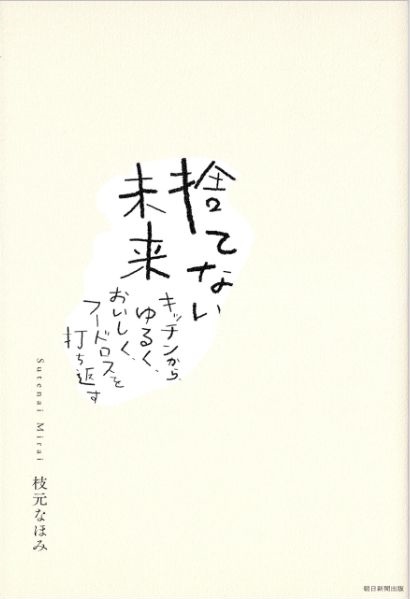 捨てない
未来
キッチンから、
ゆるく、
おいしく、
フードロスを
打ち返す
Sutenai Mirai
枝元なほみ
朝日新聞出版